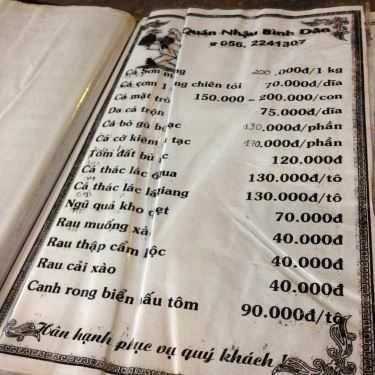 Quán Nhậu Bình Dân
056. 2241307
.000đ/1 kg
Cá cơm chiên tỏi 70.000đ/dĩa
Cá mặt trò 150.000 - 200.000/con
Da cá trộn 75.000đ/dĩa
Cá bò gù 130.000đ/phần
Cá cờ kiếm tạc .000đ/phần
Tôm đất bù 120.000đ
Cá thác lác 130.000đ/tô
Cá thác lác giang 130.000đ/tô
Ngũ quả kho quẹt 70.000đ
Rau muống xào 40.000đ
Rau thập cẩm luộc 40.000đ
Rau cải xào 40.000đ
Canh rong biển nấu tôm 90.000đ/tô
Hân hạnh phục vụ quý khách !